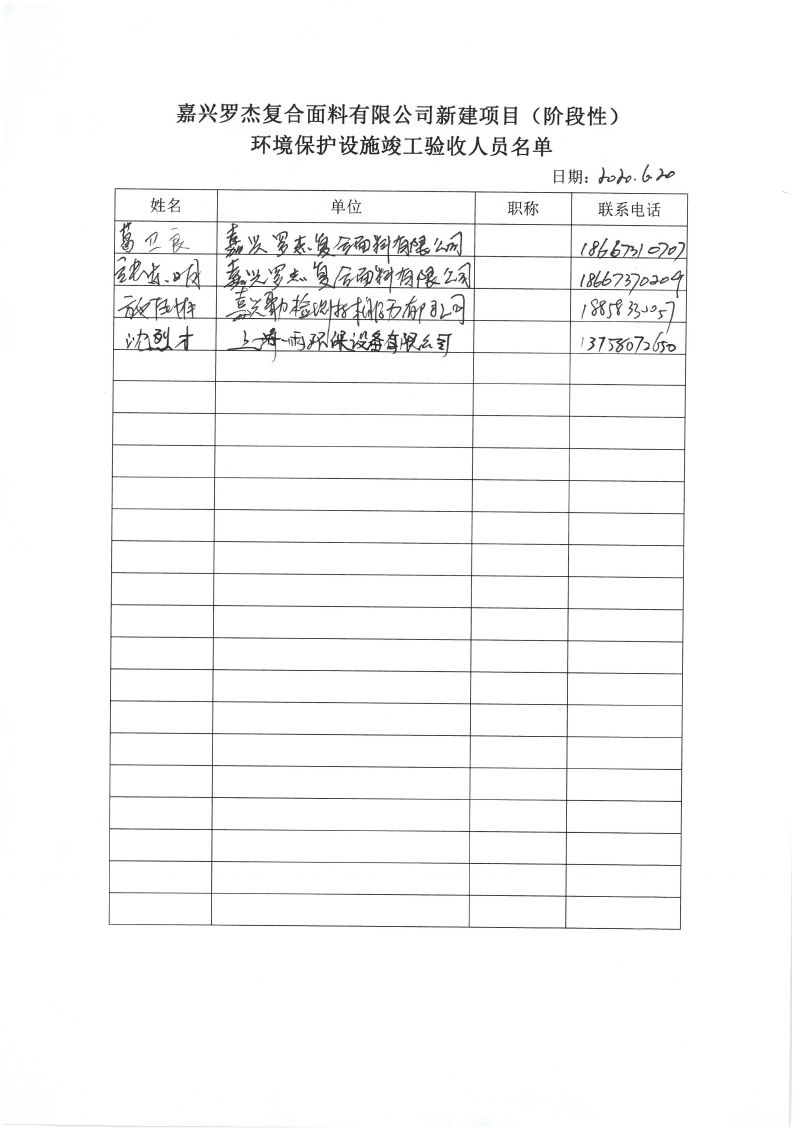 嘉兴罗杰复合面料有限公司新建项目（阶段性）
环境保护设施竣工验收人员名单
日期：2020.6.20
姓名 单位 职称 联系电话
葛卫良 嘉兴罗杰复合面料有限公司 18667310707
嘉兴罗杰复合面料有限公司 18667370204
嘉兴 检测技术服务有限公司
沈烈才 上海一雨环保设备有限公司 13758072650